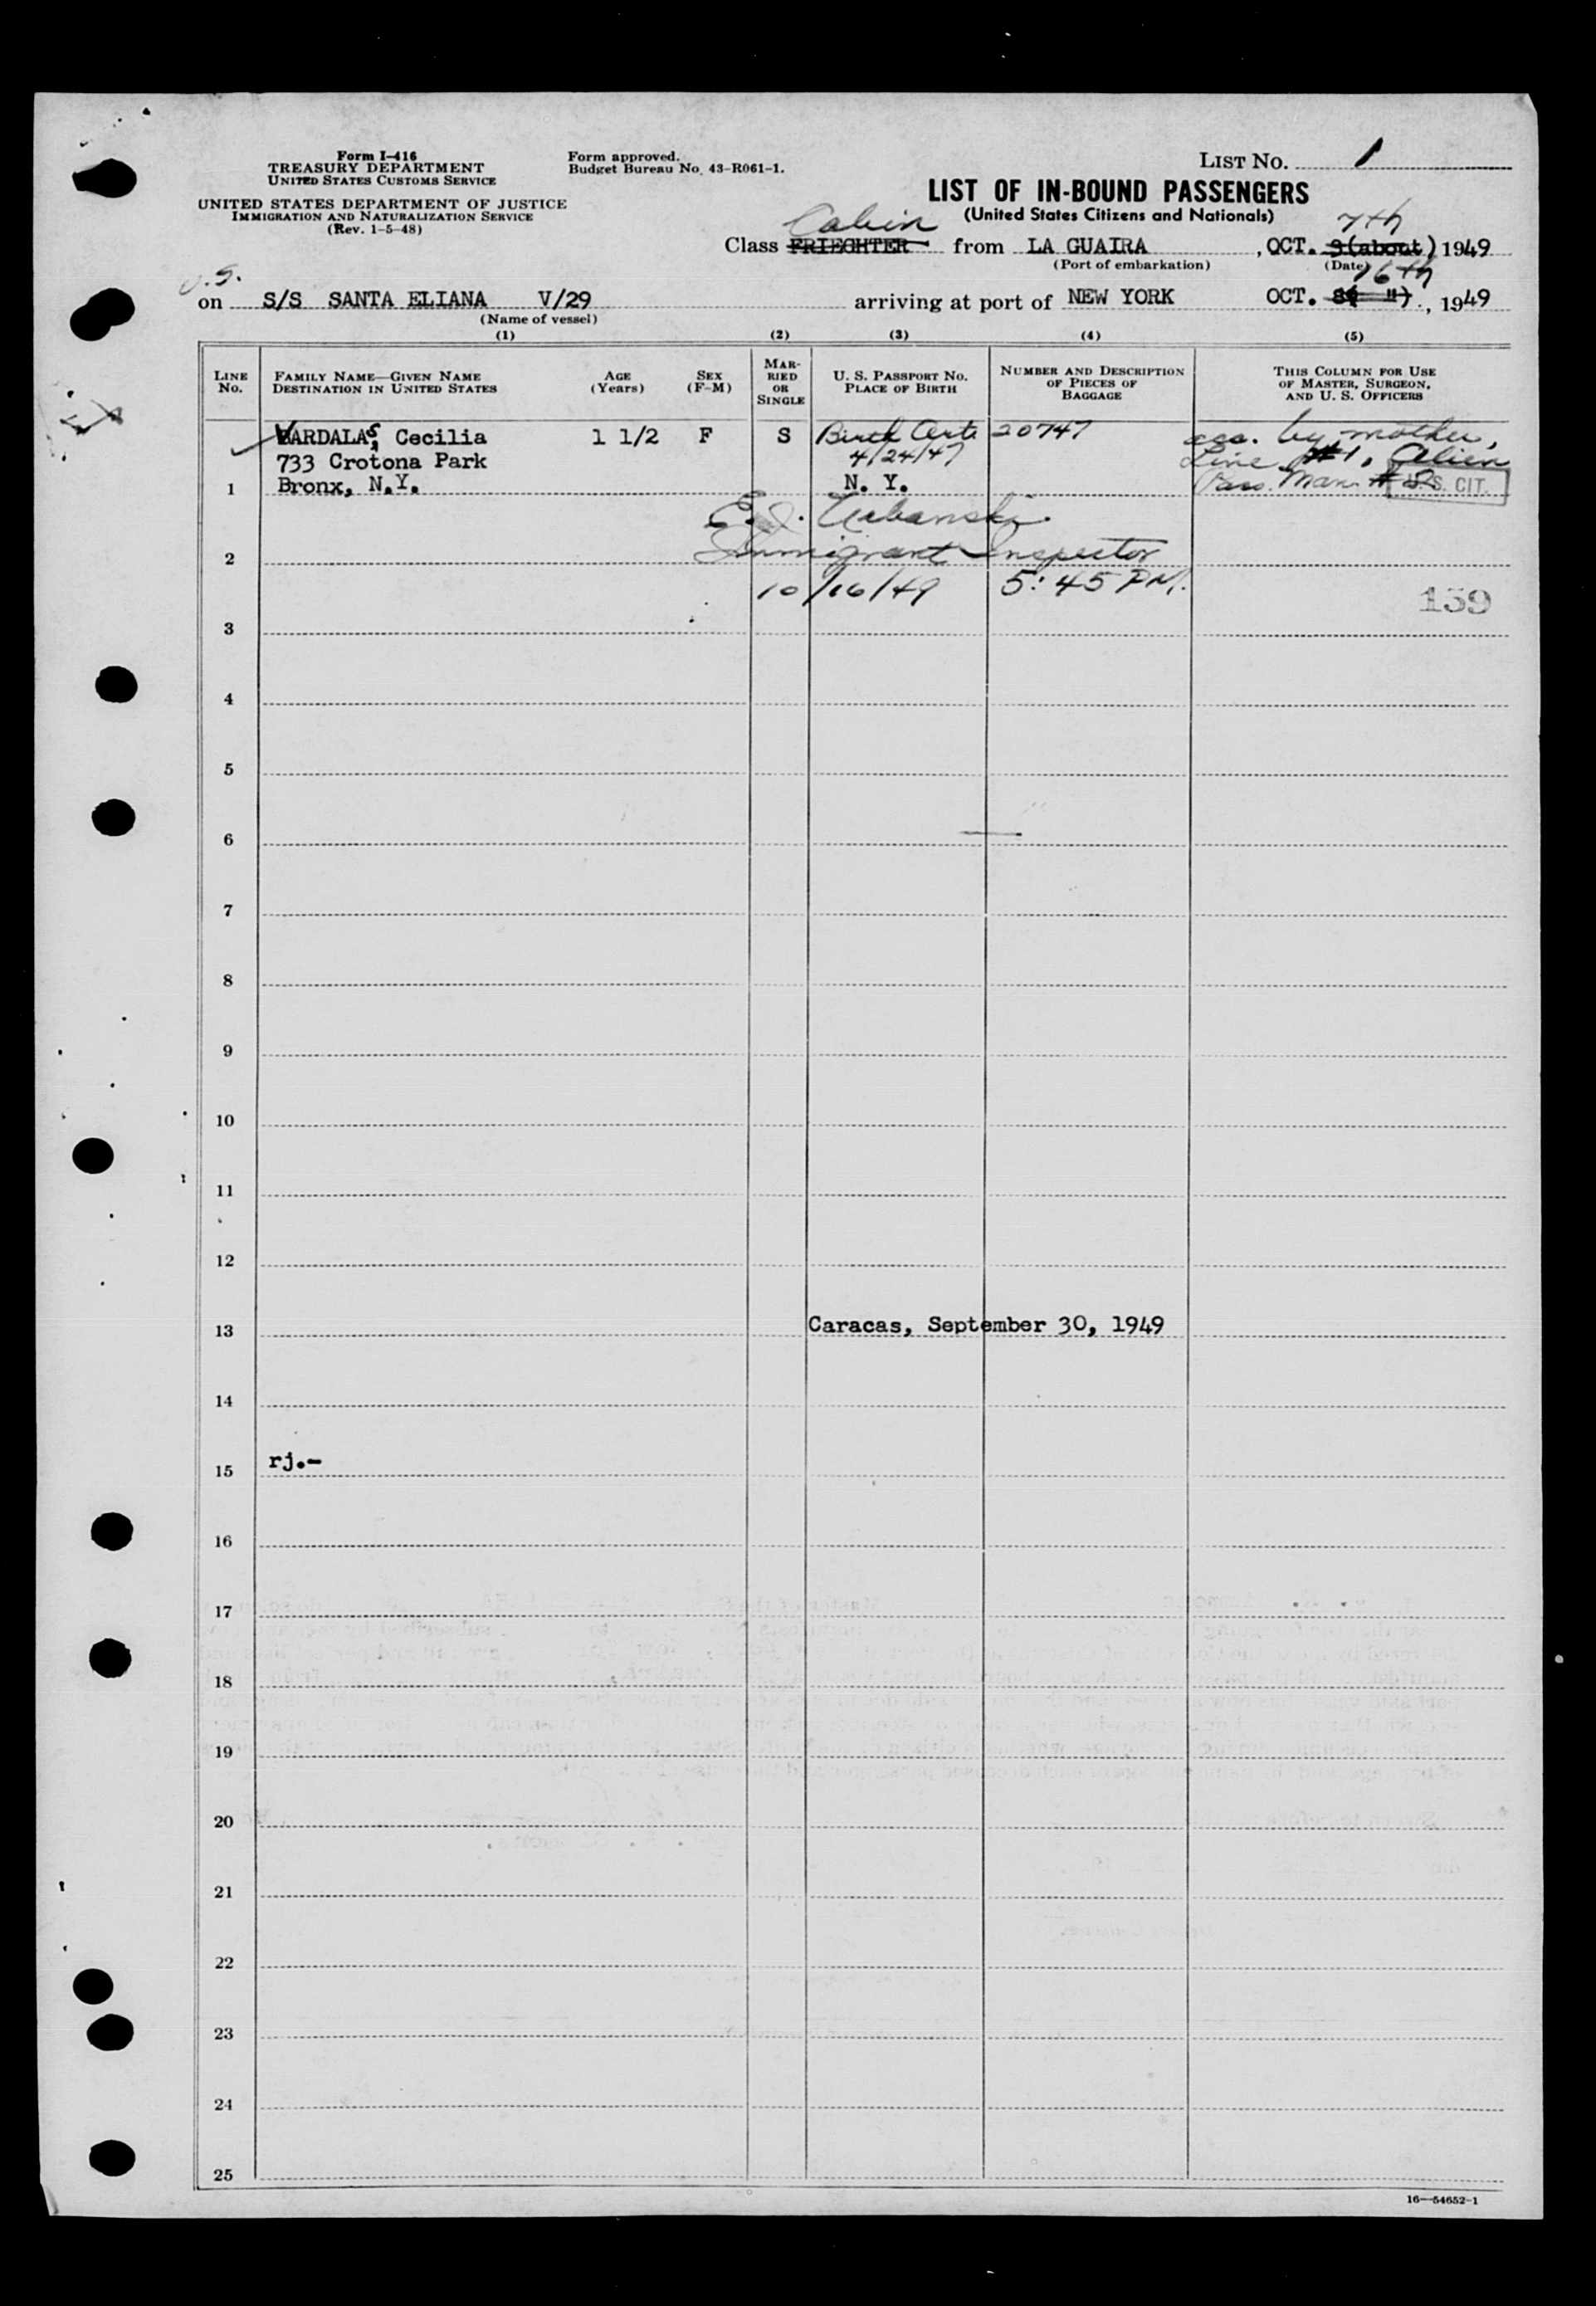 Form I-416
TREASURY DEPARTMENT
UNITED STATES CUSTOMS SERVICE
UNITED STATES DEPARTMENT OF JUSTICE
IMMIGRATION AND NATURALIZATION SERVICE
(Rev. 1-5-48)
Form approved.
Budget Bureau No. 43-R061-1.
LIST NO. 1
LIST OF IN-BOUND PASSENGERS
(United States Citizens and Nationals)
Cabin 7th
Class FRIEGHTER from LA GUAIRA , OCT. 3(about) 1949
(Port of embarkation) (Date)
U.S. 16th
on S/S SANTA ELIANA V/29 arriving at port of NEW YORK OCT. 8( ") , 1949
(Name of vessel)
(1) (2) (3) (4) (5)
LINE No. FAMILY NAME—GIVEN NAME DESTINATION IN UNITED STATES AGE (Years) SEX (F-M) MARRIED OR SINGLE U. S. PASSPORT NO. PLACE OF BIRTH NUMBER AND DESCRIPTION OF PIECES OF BAGGAGE THIS COLUMN FOR USE OF MASTER, SURGEON, AND U. S. OFFICERS
VARDALAS, Cecilia 1 1/2 F S Birth Cert 20747 acc. by mother,
733 Crotona Park 4/24/47 Line #1, Alien
1 Bronx, N.Y. N. Y. Pass. Man. # U.S. CIT.
E. J. Urbanski
2 Immigrant Inspector
10/16/49 5:45 PM. 139
3
4
5
6
7
8
9
10
11
12
13 Caracas, September 30, 1949
14
15 rj.-
16
17
18
19
20
21
22
23
24
25
16—54652-1